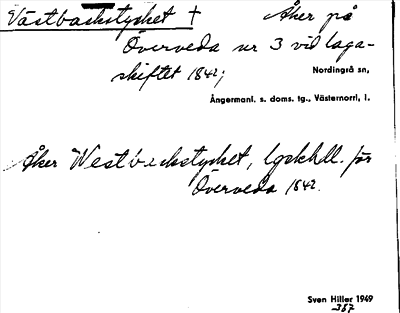 Västbackstycket + Åker på
Överveda nr 3 vid laga-
skiftet 1842;
Nordingrå sn,
Ångermanl. s. doms. tg., Västernorrl, l.
Åker Westbackstycket, lgskhdl. för
Överveda 1842.
Sven Hiller 1949
387